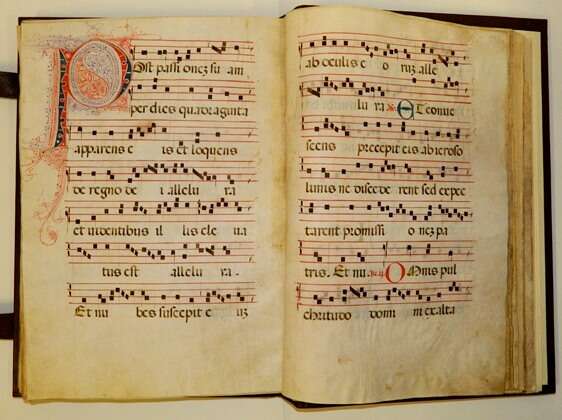 Post passionez su am
per dies quadraginta
apparens e is et loquens
de regno de i allelu ya
et videntibus il lis ele va
tus est allelu ya.
Et nu bes suscepit e uz
ab oculis e o ruz alle
lu ya. Et conve
scens precepit eis ab ieroso
limis ne discede rent sed expec
tarent promissi o nez pa
tris. Et nu. Omnis pul
chritudo domi ni exalta